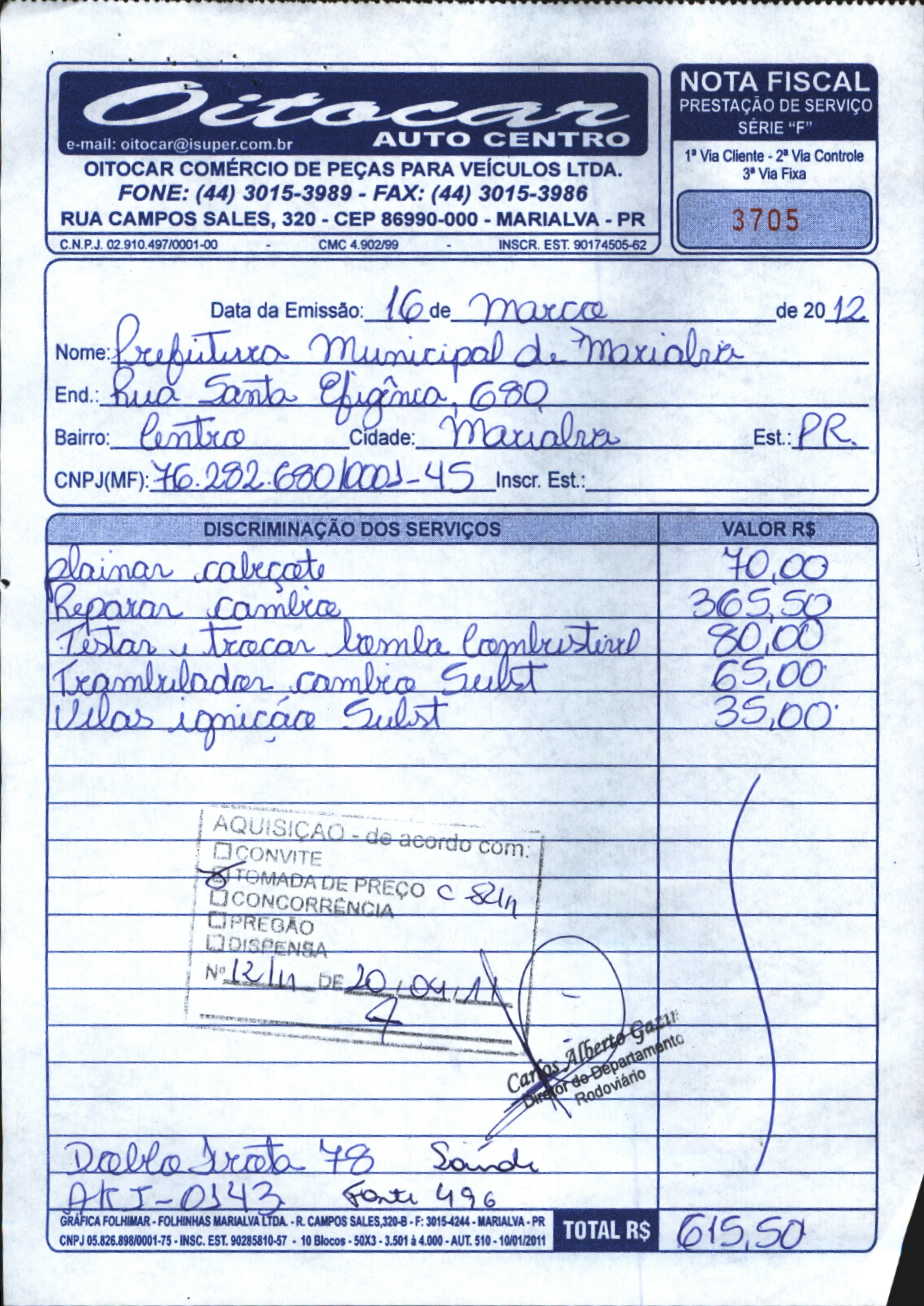 Oitocar
e-mail: oitocar@isuper.com.br
AUTO CENTRO
OITOCAR COMÉRCIO DE PEÇAS PARA VEÍCULOS LTDA.
FONE: (44) 3015-3989 - FAX: (44) 3015-3986
RUA CAMPOS SALES, 320 - CEP 86990-000 - MARIALVA - PR
C.N.P.J. 02.910.497/0001-00 - CMC 4.902/99 INSCR. EST. 90174505-62
NOTA FISCAL
PRESTAÇÃO DE SERVIÇO
SÉRIE "F"
1ª Via Cliente - 2ª Via Controle
3ª Via Fixa
3705
Data da Emissão: 16 de Marco de 2012
Nome: Prefeitura Municipal de Marialva
End.: Rua Santa Efigênia, 680
Bairro: Centro Cidade: Marialva Est.: PR.
CNPJ(MF): 76.282.680/0001-45 Inscr. Est.:
DISCRIMINAÇÃO DOS SERVIÇOS VALOR R$
plainar cabeçote 70,00
Reparar cambio 365,50
Testar e trocar bomba Combustivel 80,00
Trambulador cambio Subst 65,00
Velas ignição Subst 35,00
AQUISIÇÃO - de acordo com:
CONVITE
TOMADA DE PREÇO C 82/11
CONCORRÊNCIA
PREGÃO
DISPENSA
Nº 12/11 DE 20/04/11
Carlos Alberto
Diretor do Departamento
Rodoviário
Doblo Frota 78 Saúde
AKJ-0143 Fonte 496
GRÁFICA FOLHIMAR - FOLHINHAS MARIALVA LTDA. - R. CAMPOS SALES,320-B - F: 3015-4244 - MARIALVA - PR
CNPJ 05.826.898/0001-75 - INSC. EST. 90285810-57 - 10 Blocos - 50X3 - 3.501 à 4.000 - AUT. 510 - 10/01/2011
TOTAL R$ 615,50